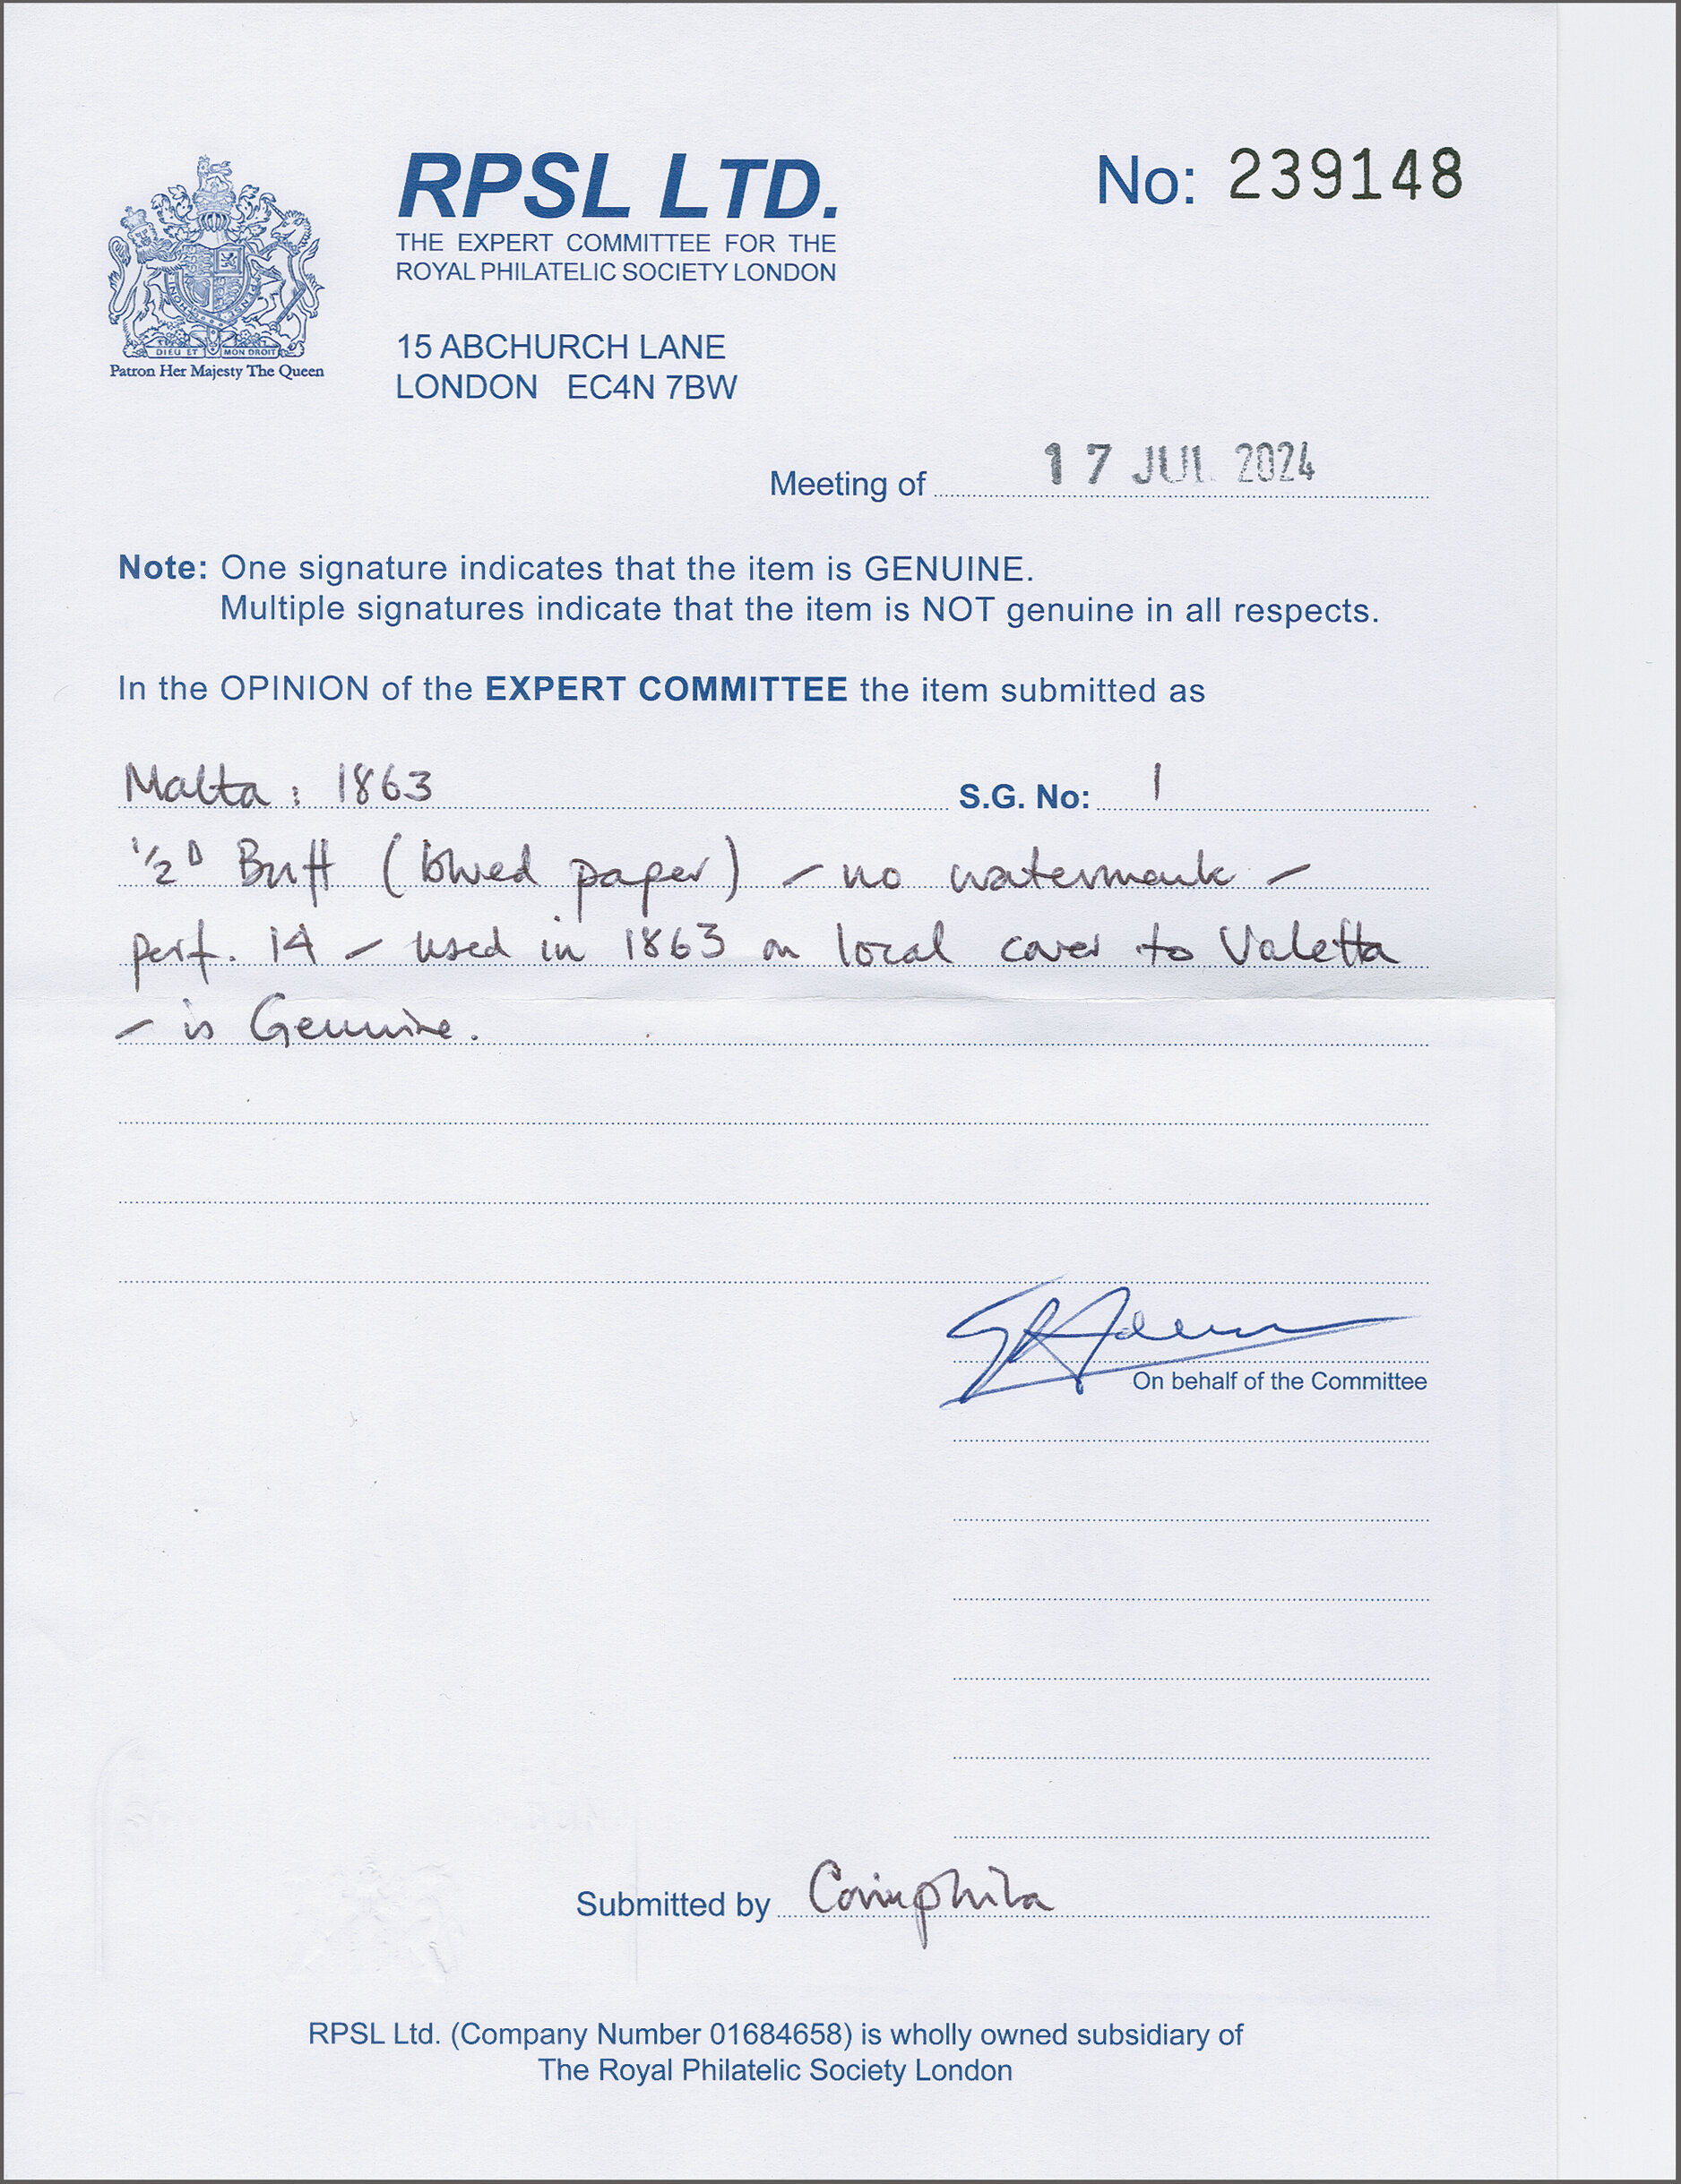 RPSL LTD.
No: 239148
THE EXPERT COMMITTEE FOR THE
ROYAL PHILATELIC SOCIETY LONDON
DIEU ET MON DROIT
Patron Her Majesty The Queen
15 ABCHURCH LANE
LONDON EC4N 7BW
Meeting of 17 JUL 2024
Note: One signature indicates that the item is GENUINE.
Multiple signatures indicate that the item is NOT genuine in all respects.
In the OPINION of the EXPERT COMMITTEE the item submitted as
Malta : 1863 S.G. No: 1
1/2D Buff (blued paper) – no watermark –
perf. 14 – used in 1863 on local cover to Valetta
– is Genuine.
On behalf of the Committee
Submitted by Corinphila
RPSL Ltd. (Company Number 01684658) is wholly owned subsidiary of
The Royal Philatelic Society London